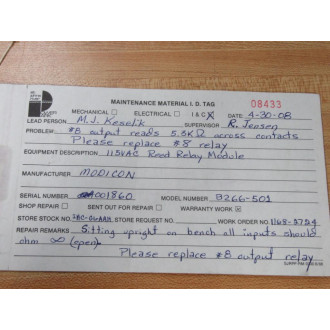 MAINTENANCE MATERIAL I. D. TAG 08433
MECHANICAL ELECTRICAL I & C X DATE 4-30-08
LEAD PERSON M.J. Keselik SUPERVISOR R. Jensen
PROBLEM: #8 output reads 5.5KΩ across contacts
Please replace #8 relay
EQUIPMENT DESCRIPTION 115VAC Reed Relay Module
MANUFACTURER MODICON
SERIAL NUMBER A001860 MODEL NUMBER B266-501
SHOP REPAIR SENT OUT FOR REPAIR WARRANTY WORK
STORE STOCK NO. STORE REQUEST NO. WORK ORDER NO. 1168-3754
REPAIR REMARKS Sitting upright on bench all inputs should
ohm ∞ (open)
Please replace #8 output relay